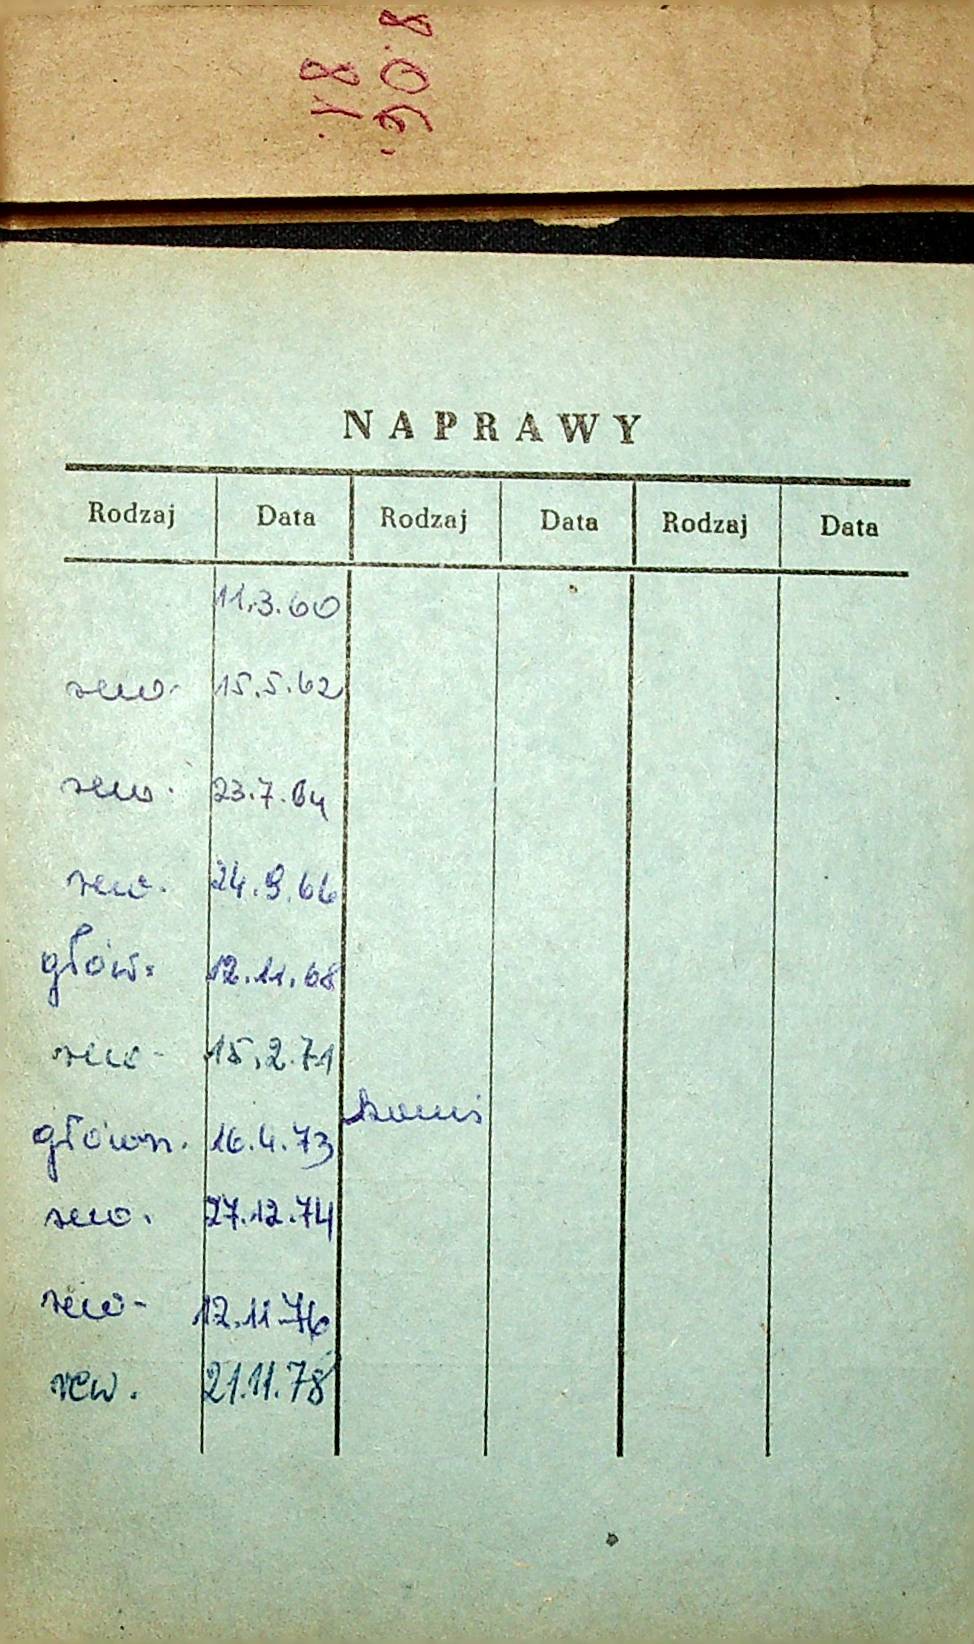 NAPRAWY
Rodzaj Data Rodzaj Data Rodzaj Data
11.3.60
rew. 15.5.62
rew. 23.7.64
rew. 24.9.66
głów. 12.11.68
rew. 15.2.71
główn. 16.4.73
rew. 27.12.74
rew. 12.11.76
rew. 21.11.78